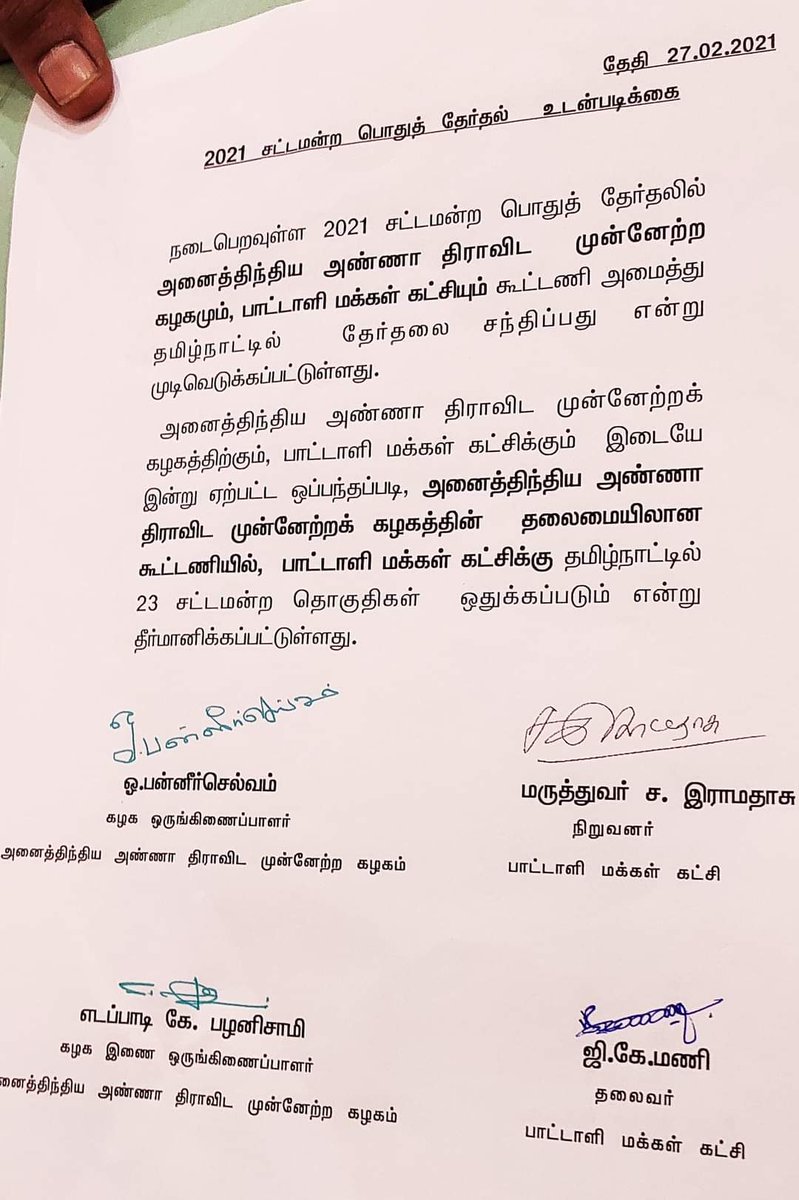 தேதி 27.02.2021
2021 சட்டமன்ற பொதுத் தேர்தல் உடன்படிக்கை
நடைபெறவுள்ள 2021 சட்டமன்ற பொதுத் தேர்தலில்
அனைத்திந்திய அண்ணா திராவிட முன்னேற்ற
கழகமும், பாட்டாளி மக்கள் கட்சியும் கூட்டணி அமைத்து
தமிழ்நாட்டில் தேர்தலை சந்திப்பது என்று
முடிவெடுக்கப்பட்டுள்ளது.
அனைத்திந்திய அண்ணா திராவிட முன்னேற்றக்
கழகத்திற்கும், பாட்டாளி மக்கள் கட்சிக்கும் இடையே
இன்று ஏற்பட்ட ஒப்பந்தப்படி, அனைத்திந்திய அண்ணா
திராவிட முன்னேற்றக் கழகத்தின் தலைமையிலான
கூட்டணியில், பாட்டாளி மக்கள் கட்சிக்கு தமிழ்நாட்டில்
23 சட்டமன்ற தொகுதிகள் ஒதுக்கப்படும் என்று
தீர்மானிக்கப்பட்டுள்ளது.
ஓ.பன்னீர்செல்வம்
ஓ.பன்னீர்செல்வம்
கழக ஒருங்கிணைப்பாளர்
அனைத்திந்திய அண்ணா திராவிட முன்னேற்ற கழகம்
மருத்துவர் ச. இராமதாசு
நிறுவனர்
பாட்டாளி மக்கள் கட்சி
எடப்பாடி கே. பழனிசாமி
கழக இணை ஒருங்கிணைப்பாளர்
னைத்திந்திய அண்ணா திராவிட முன்னேற்ற கழகம்
ஜி.கே.மணி
தலைவர்
பாட்டாளி மக்கள் கட்சி